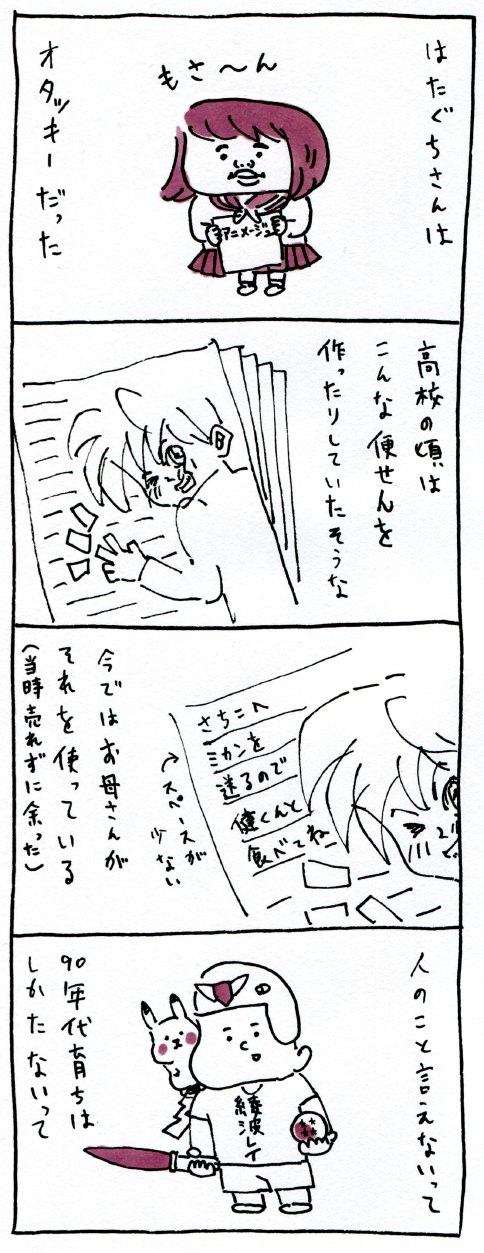 はたぐちさんは
もさ〜ん
アニメージュ
オタッキーだった
高校の頃は
こんな便せんを
作ったりしていたそうな
さちこへ
ミカンを
送るので
健くんと
食べてね
スペースが
少ない
今ではお母さんが
それを使っている
(当時売れずに余った)
人のこと言えないって
綾波レイ
90年代育ちは
しかたないって